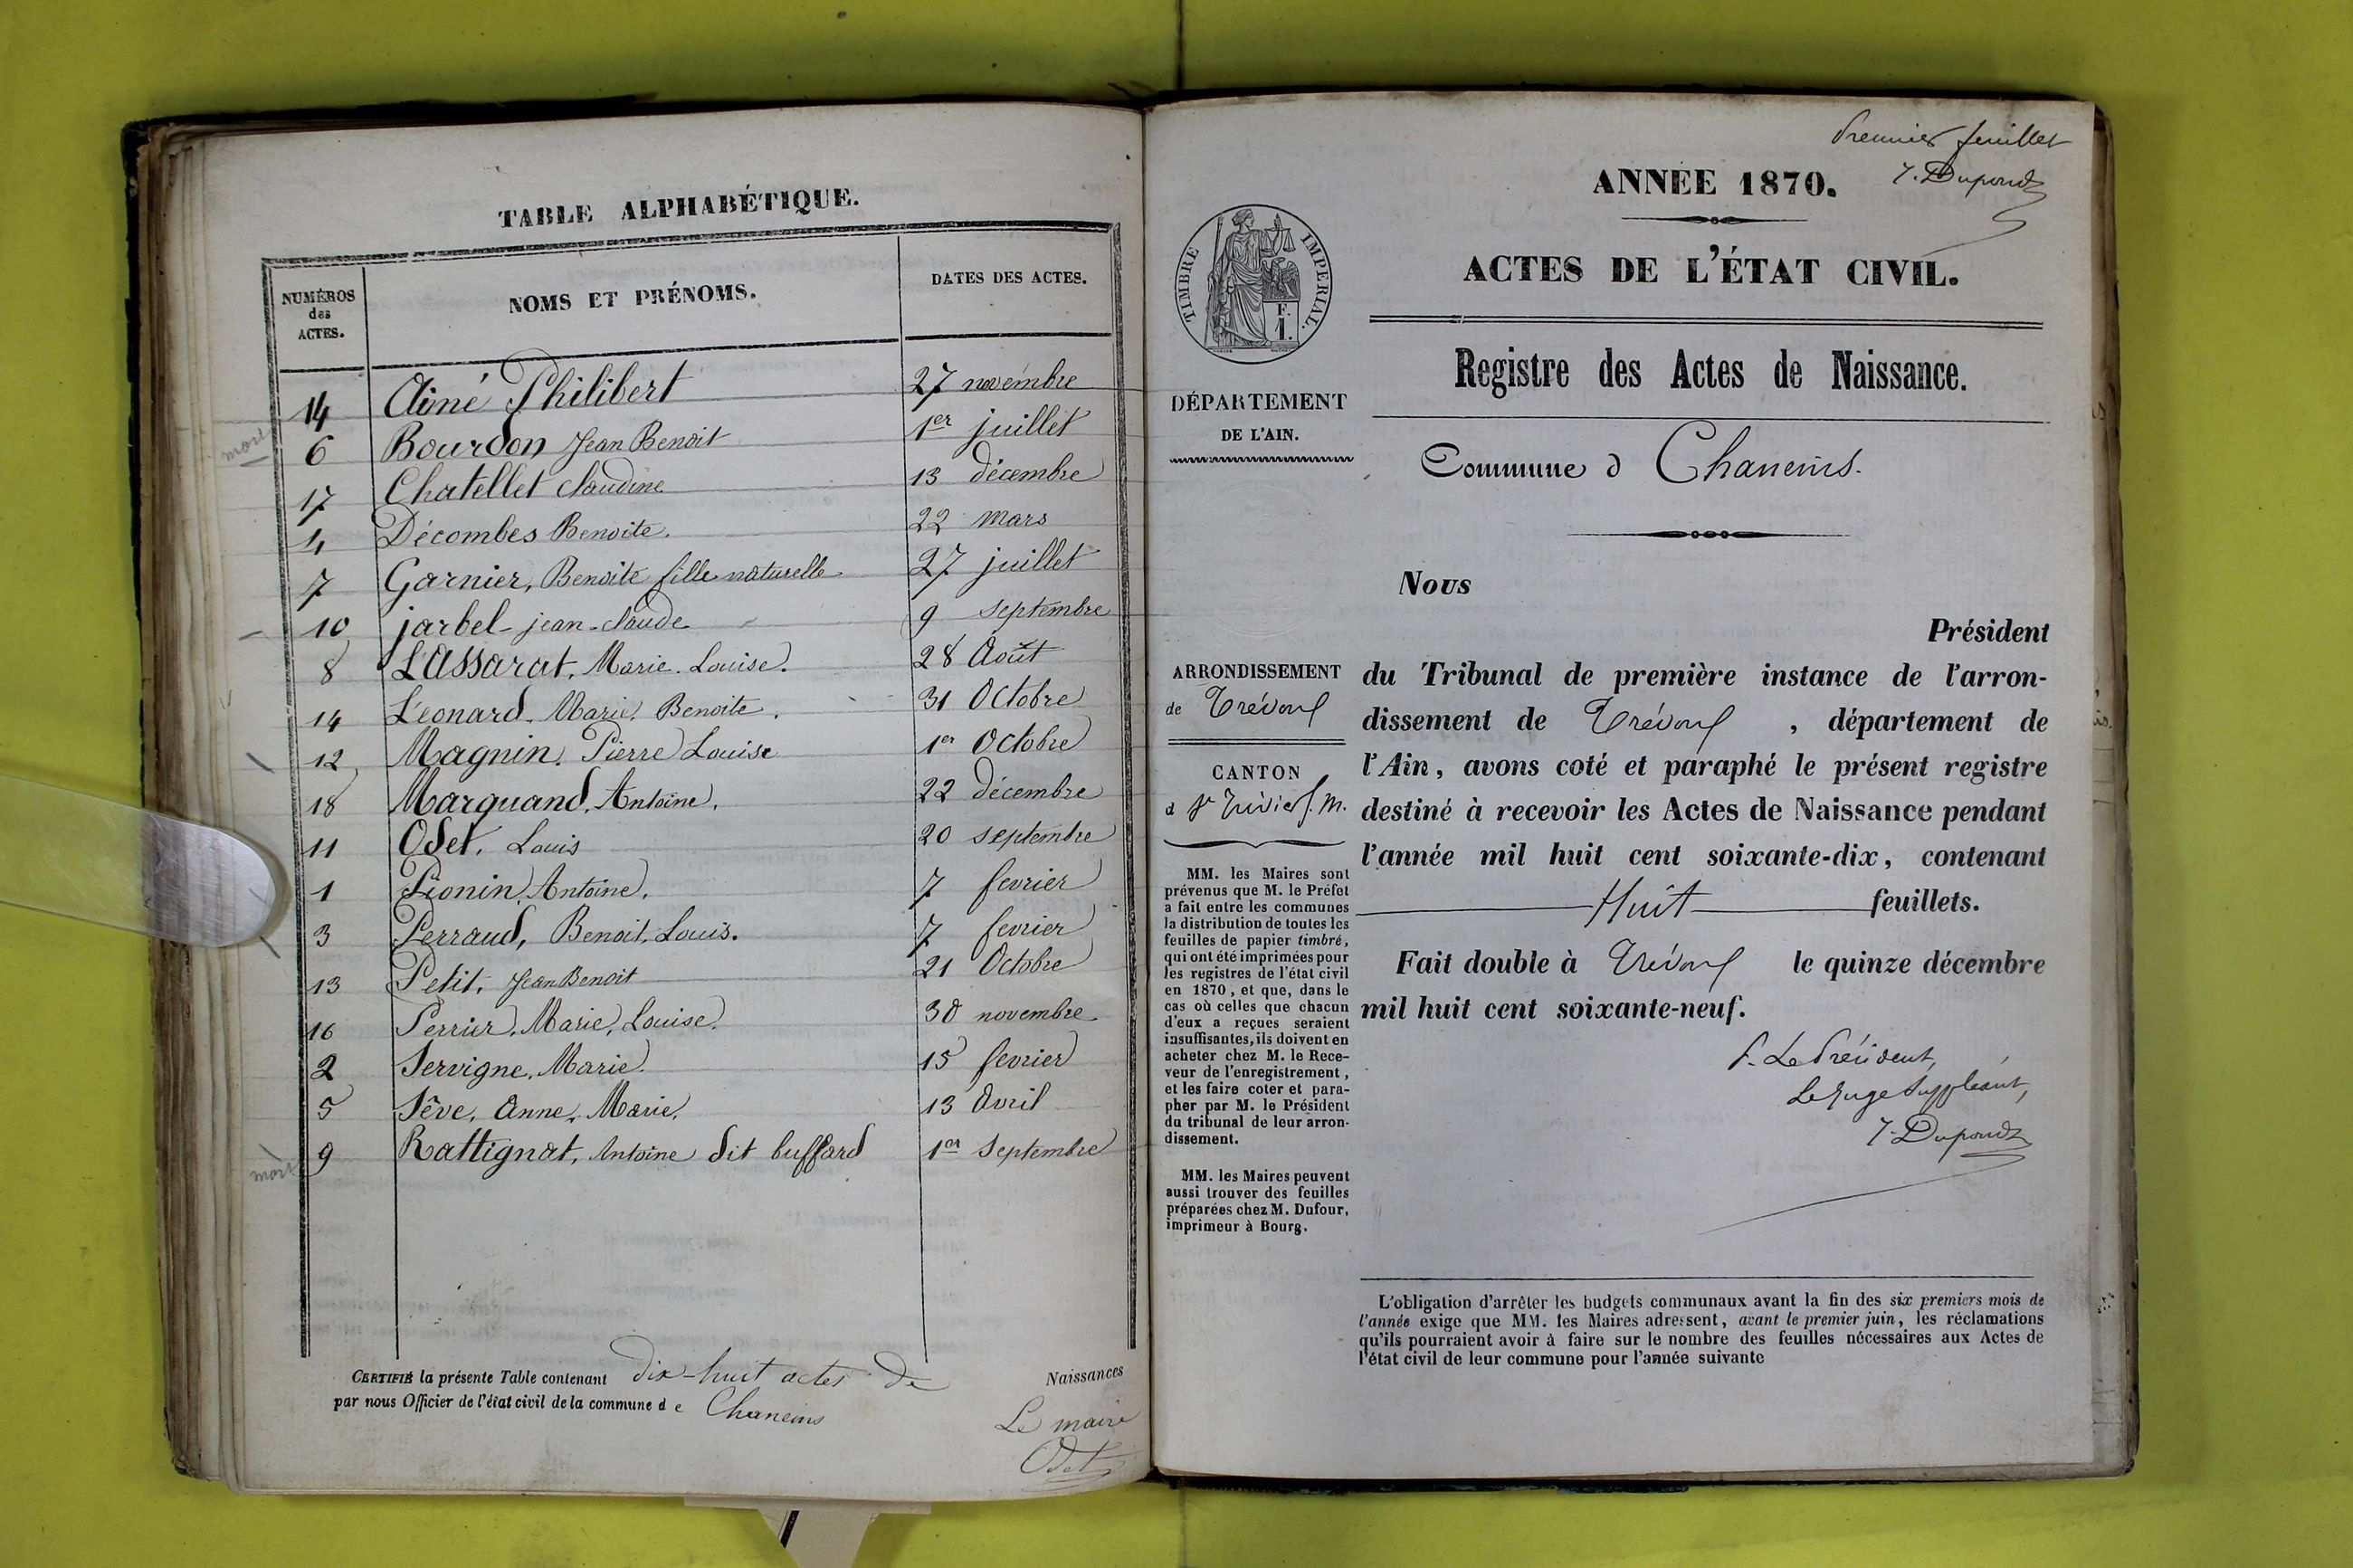 TABLE ALPHABÉTIQUE.
NUMÉROS
des
ACTES.
NOMS ET PRÉNOMS.
DATES DES ACTES.
14 Aimé Philibert 27 novembre
mort 6 Bourdon Jean Benoit 1er juillet
17 Chatellet Claudine 13 décembre
4 Décombes Benoite. 22 mars
7 Garnier, Benoite fille naturelle 27 juillet
10 jarbel-jean-claude 9 septembre
8 LAssarat, Marie Louise. 28 Août
14 Léonard, Marie, Benoite. 31 Octobre
12 Magnin, Pierre Louise 1er Octobre
18 Marguand, Antoine. 22 décembre
11 Odet, Louis 20 septembre
1 Pionin, Antoine. 7 fevrier
3 Perraud, Benoit, Louis. 7 fevrier
13 Petit, Jean Benoit 21 Octobre
16 Perrier, Marie, Louise. 30 novembre
2 Servigne, Marie. 15 fevrier
5 Sêve, Anne, Marie. 13 Avril
mort 9 Rattignat, Antoine dit buffard 1er septembre
CERTIFIÉ la présente Table contenant dix-huit actes de Naissances
par nous Officier de l'état civil de la commune de Chaneins
Le maire
Odet
Premier feuillet
J. Dupond
ANNÉE 1870.
ACTES DE L'ÉTAT CIVIL.
TIMBRE IMPERIAL.
F.
1.
Registre des Actes de Naissance.
DÉPARTEMENT
DE L'AIN.
Commune d Chaneins.
Nous
Président
du Tribunal de première instance de l'arron-
dissement de Trévoux, département de
l'Ain, avons coté et paraphé le présent registre
destiné à recevoir les Actes de Naissance pendant
l'année mil huit cent soixante-dix, contenant
Huit feuillets.
Fait double à Trévoux le quinze décembre
mil huit cent soixante-neuf.
P. Le Président,
Le Juge Suppléant,
J. Dupond
ARRONDISSEMENT
de Trévoux
CANTON
d St Trivier s. M.
MM. les Maires sont
prévenus que M. le Préfet
a fait entre les communes
la distribution de toutes les
feuilles de papier timbré,
qui ont été imprimées pour
les registres de l'état civil
en 1870, et que, dans le
cas où celles que chacun
d'eux a reçues seraient
insuffisantes, ils doivent en
acheter chez M. le Rece-
veur de l'enregistrement,
et les faire coter et para-
pher par M. le Président
du tribunal de leur arron-
dissement.
MM. les Maires peuvent
aussi trouver des feuilles
préparées chez M. Dufour,
imprimeur à Bourg.
L'obligation d'arrêter les budgets communaux avant la fin des six premiers mois de
l'année exige que MM. les Maires adressent, avant le premier juin, les réclamations
qu'ils pourraient avoir à faire sur le nombre des feuilles nécessaires aux Actes de
l'état civil de leur commune pour l'année suivante